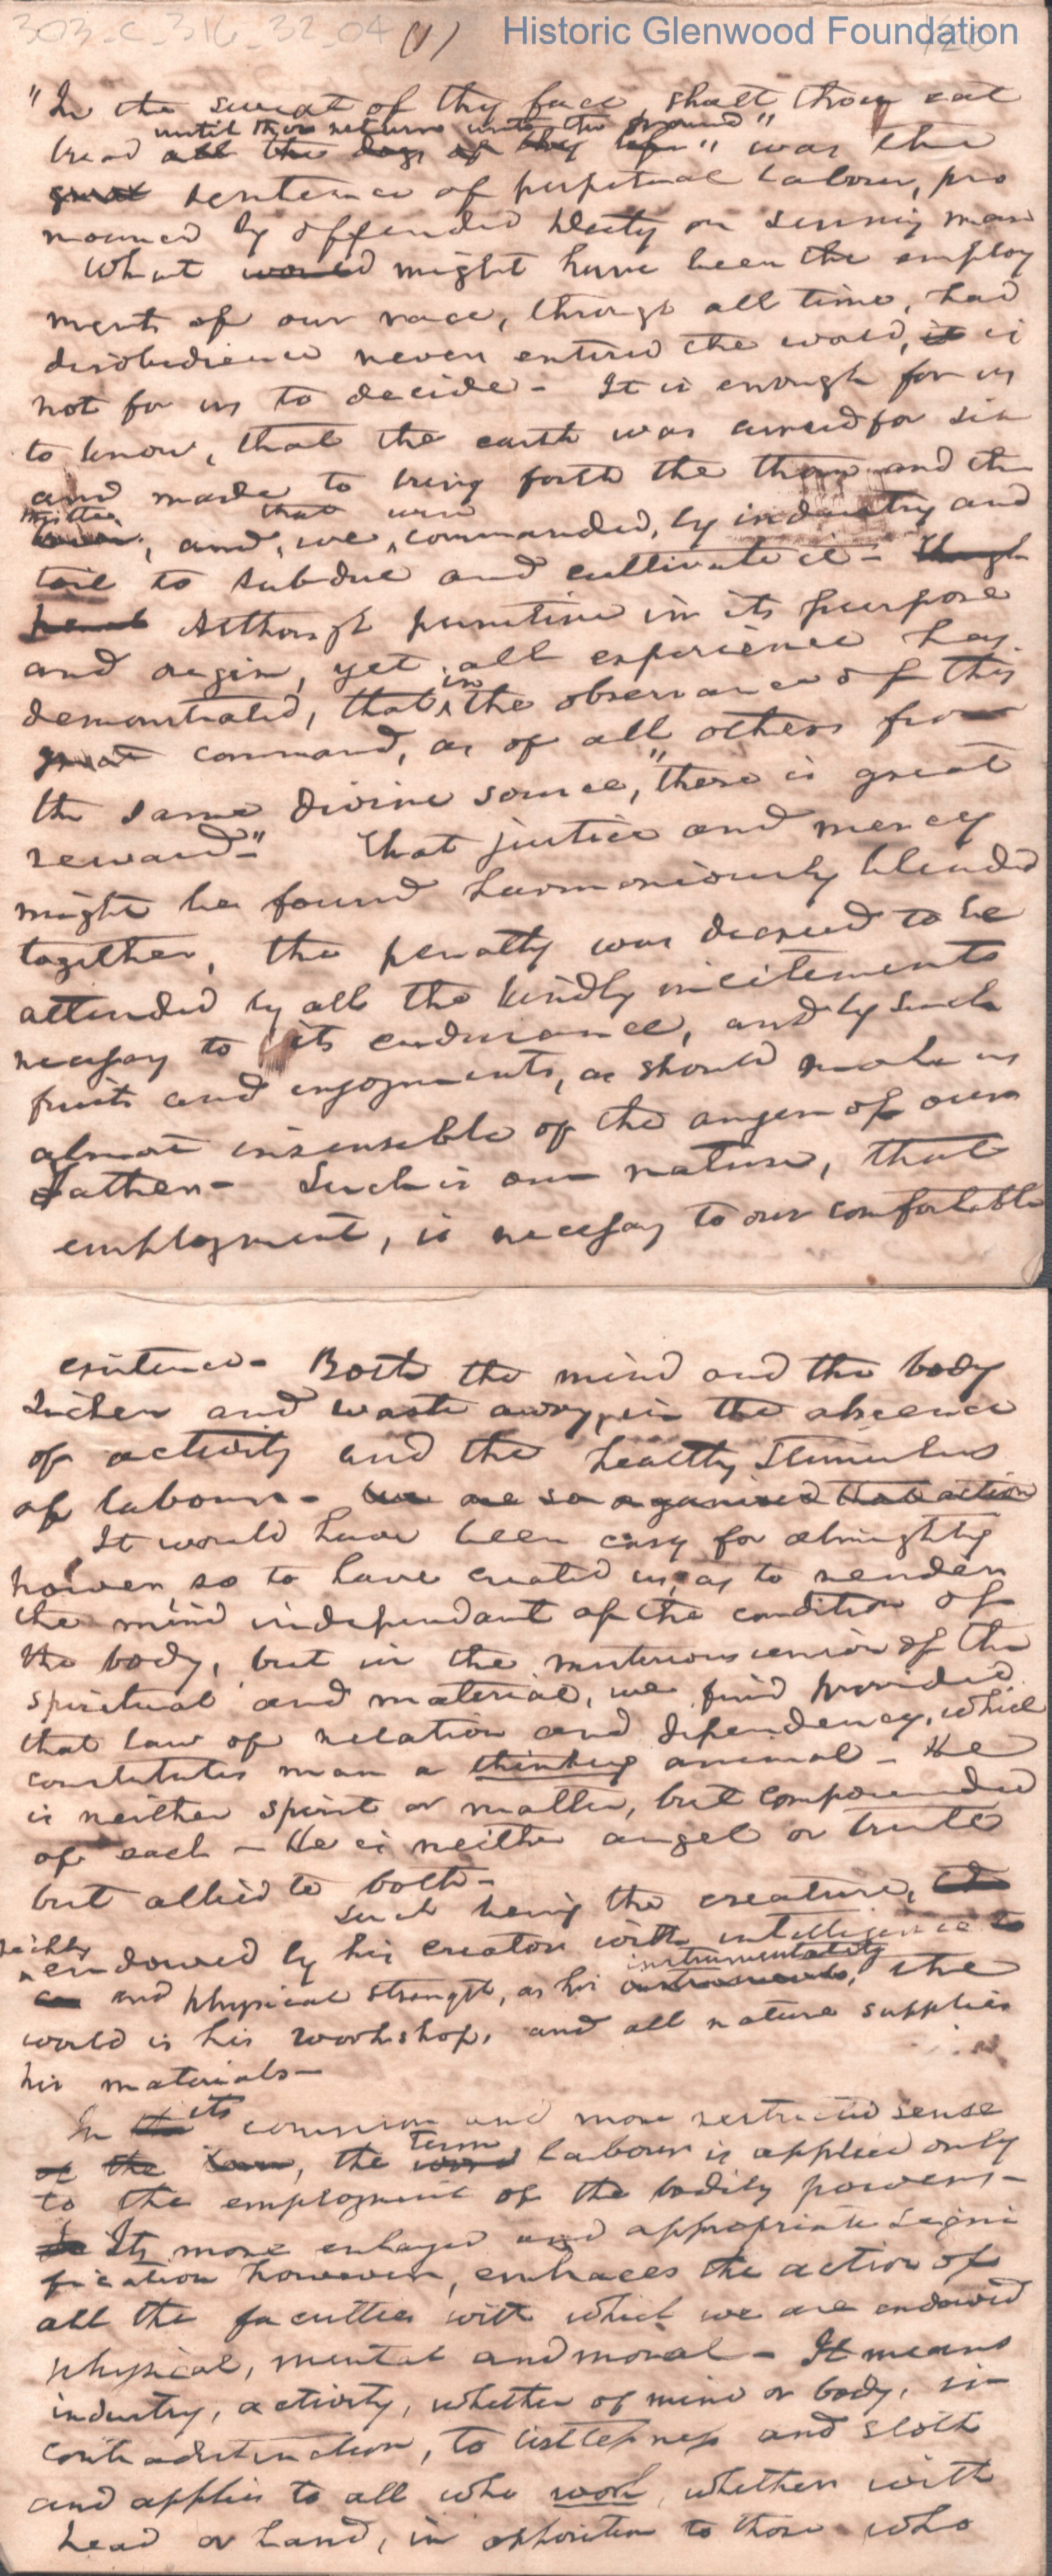 303_C_316_32_04 (1) Historic Glenwood Foundation
"In the sweat of thy face shalt thou eat
until thou return unto the ground"
bread all the days of thy life" was the
great sentence of perpetual labour, pro
nounced by offended Deity on sinning man
What would might have been the employ
ment of our race, through all time, had
disobedience never entered the world, it is
not for us to decide - It is enough for us
to know, that the earth was cursed for sin
and made to bring forth the thorn and the
thistle that were
, and, we, commanded, by industry and
toil to subdue and cultivate it - Though
penal Although punitive in its purpose
and origin, yet, all experience has
in
demonstrated, that the observance of this
great command, as of all others from
the same divine source, "there is great
reward-" That justice and mercy
might be found harmoniously blended
together, the penalty was decreed to be
attended by all the kindly incitements
necessary to its endurance, and by such
fruits and enjoyments, as should make us
almost insensible of the anger of our
Father - Such is our nature, that
employment, is necessary to our comfortable
existence - Both the mind and the body
sicken and waste away, in the absence
of activity and the healthy stimulus
of labour - We are so organised that action
It would have been easy for almighty
power so to have created us, as to render
the mind independant of the condition of
the body, but in the misterious union of the
spiritual and material, we find provided
that law of relation and dependency, which
constitutes man a thinking animal - He
is neither spirit or matter, but compounded
of each - He is neither angel or brute
but allied to both -
Such being the creature,
richly
endowed by his creator with intelligence
instrumentality
and physical strength, as his instruments, the
world is his workshop, and all nature supplies
his materials -
its
In the common and more restricted sense
term
of the term, the word labour is applied only
to the employment of the bodily powers -
Its more enlarged and appropriate signi
fication however, embraces the action of
all the faculties with which we are endowed
physical, mental and moral - It means
industry, activity, whether of mind or body, in
contradistinction, to listlessness and sloth
and applies to all who work, whether with
head or hand, in opposition to those who